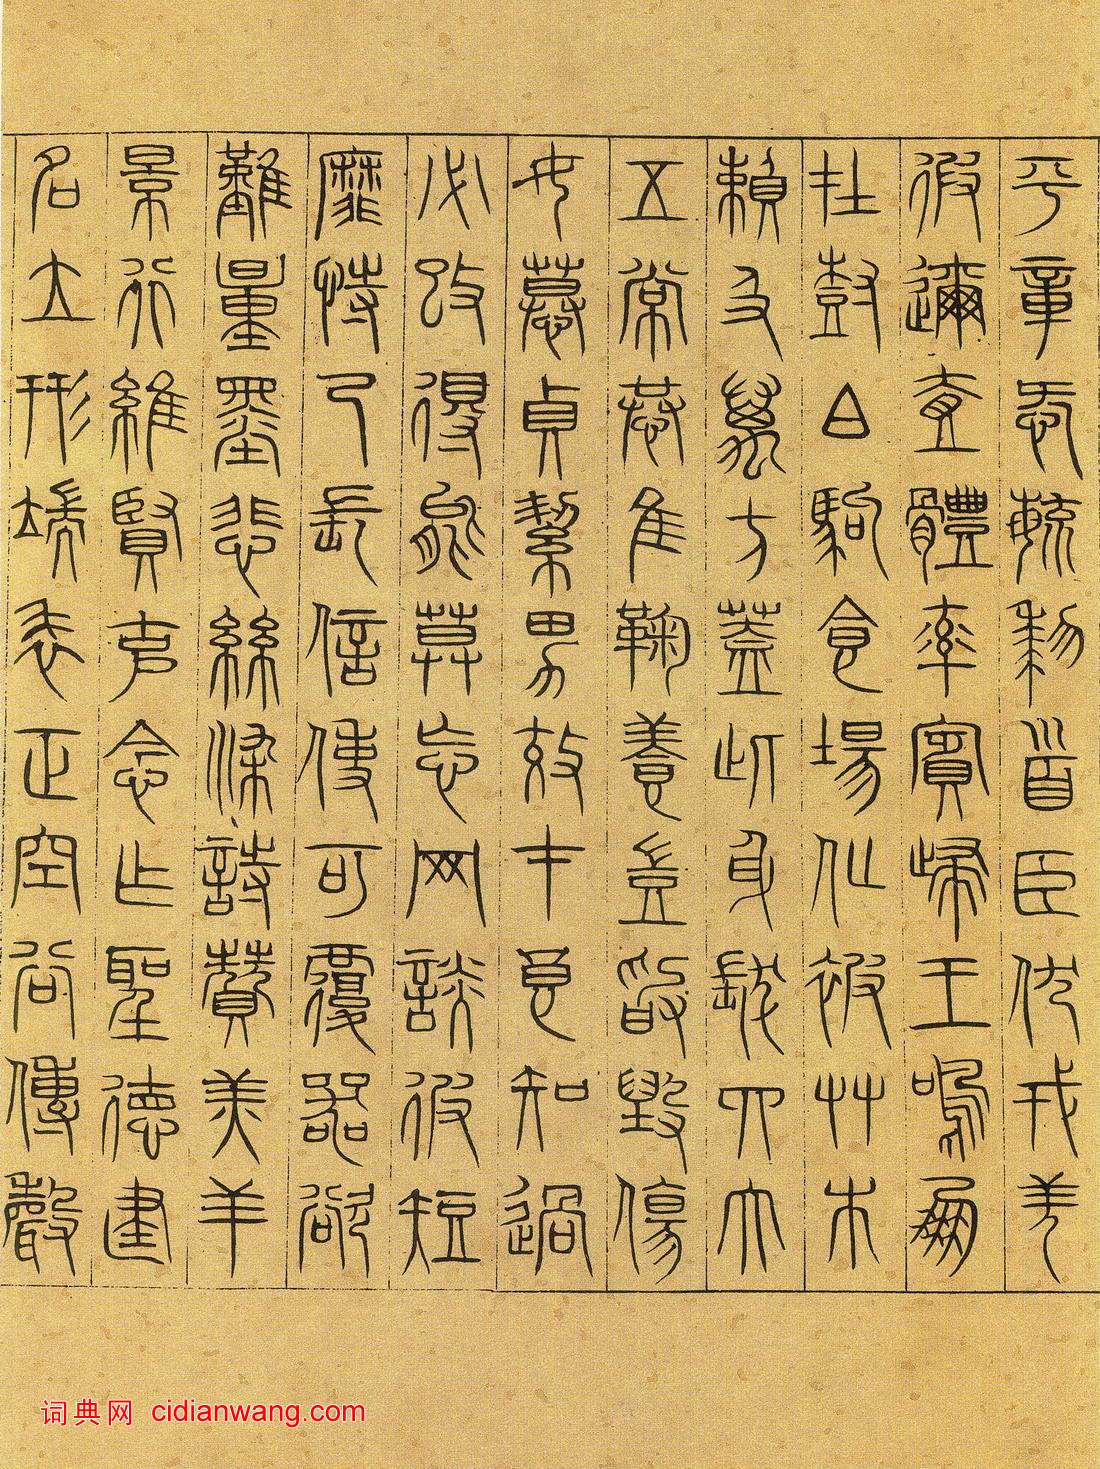 平章愛育黎首臣伏戎羌
遐邇壹體率賓歸王鳴鳳
在樹白駒食場化被草木
賴及萬方蓋此身髮四大
五常恭惟鞠養豈敢毀傷
女慕貞絜男效才良知過
必改得能莫忘罔談彼短
靡恃己長信使可覆器欲
難量墨悲絲染詩贊羔羊
景行維賢克念作聖德建
名立形端表正空谷傳聲
词典网 cidianwang.com